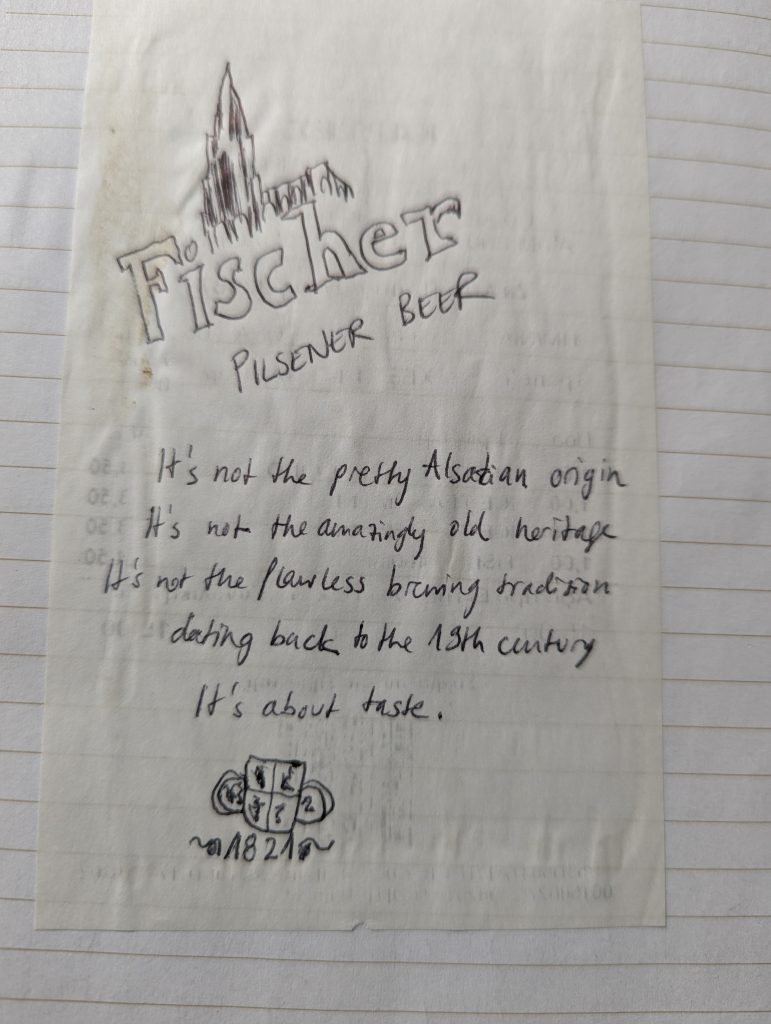 Fischer
PILSENER BEER
It's not the pretty Alsatian origin
It's not the amazingly old heritage
It's not the flawless brewing tradition
dating back to the 13th century
It's about taste.
1821